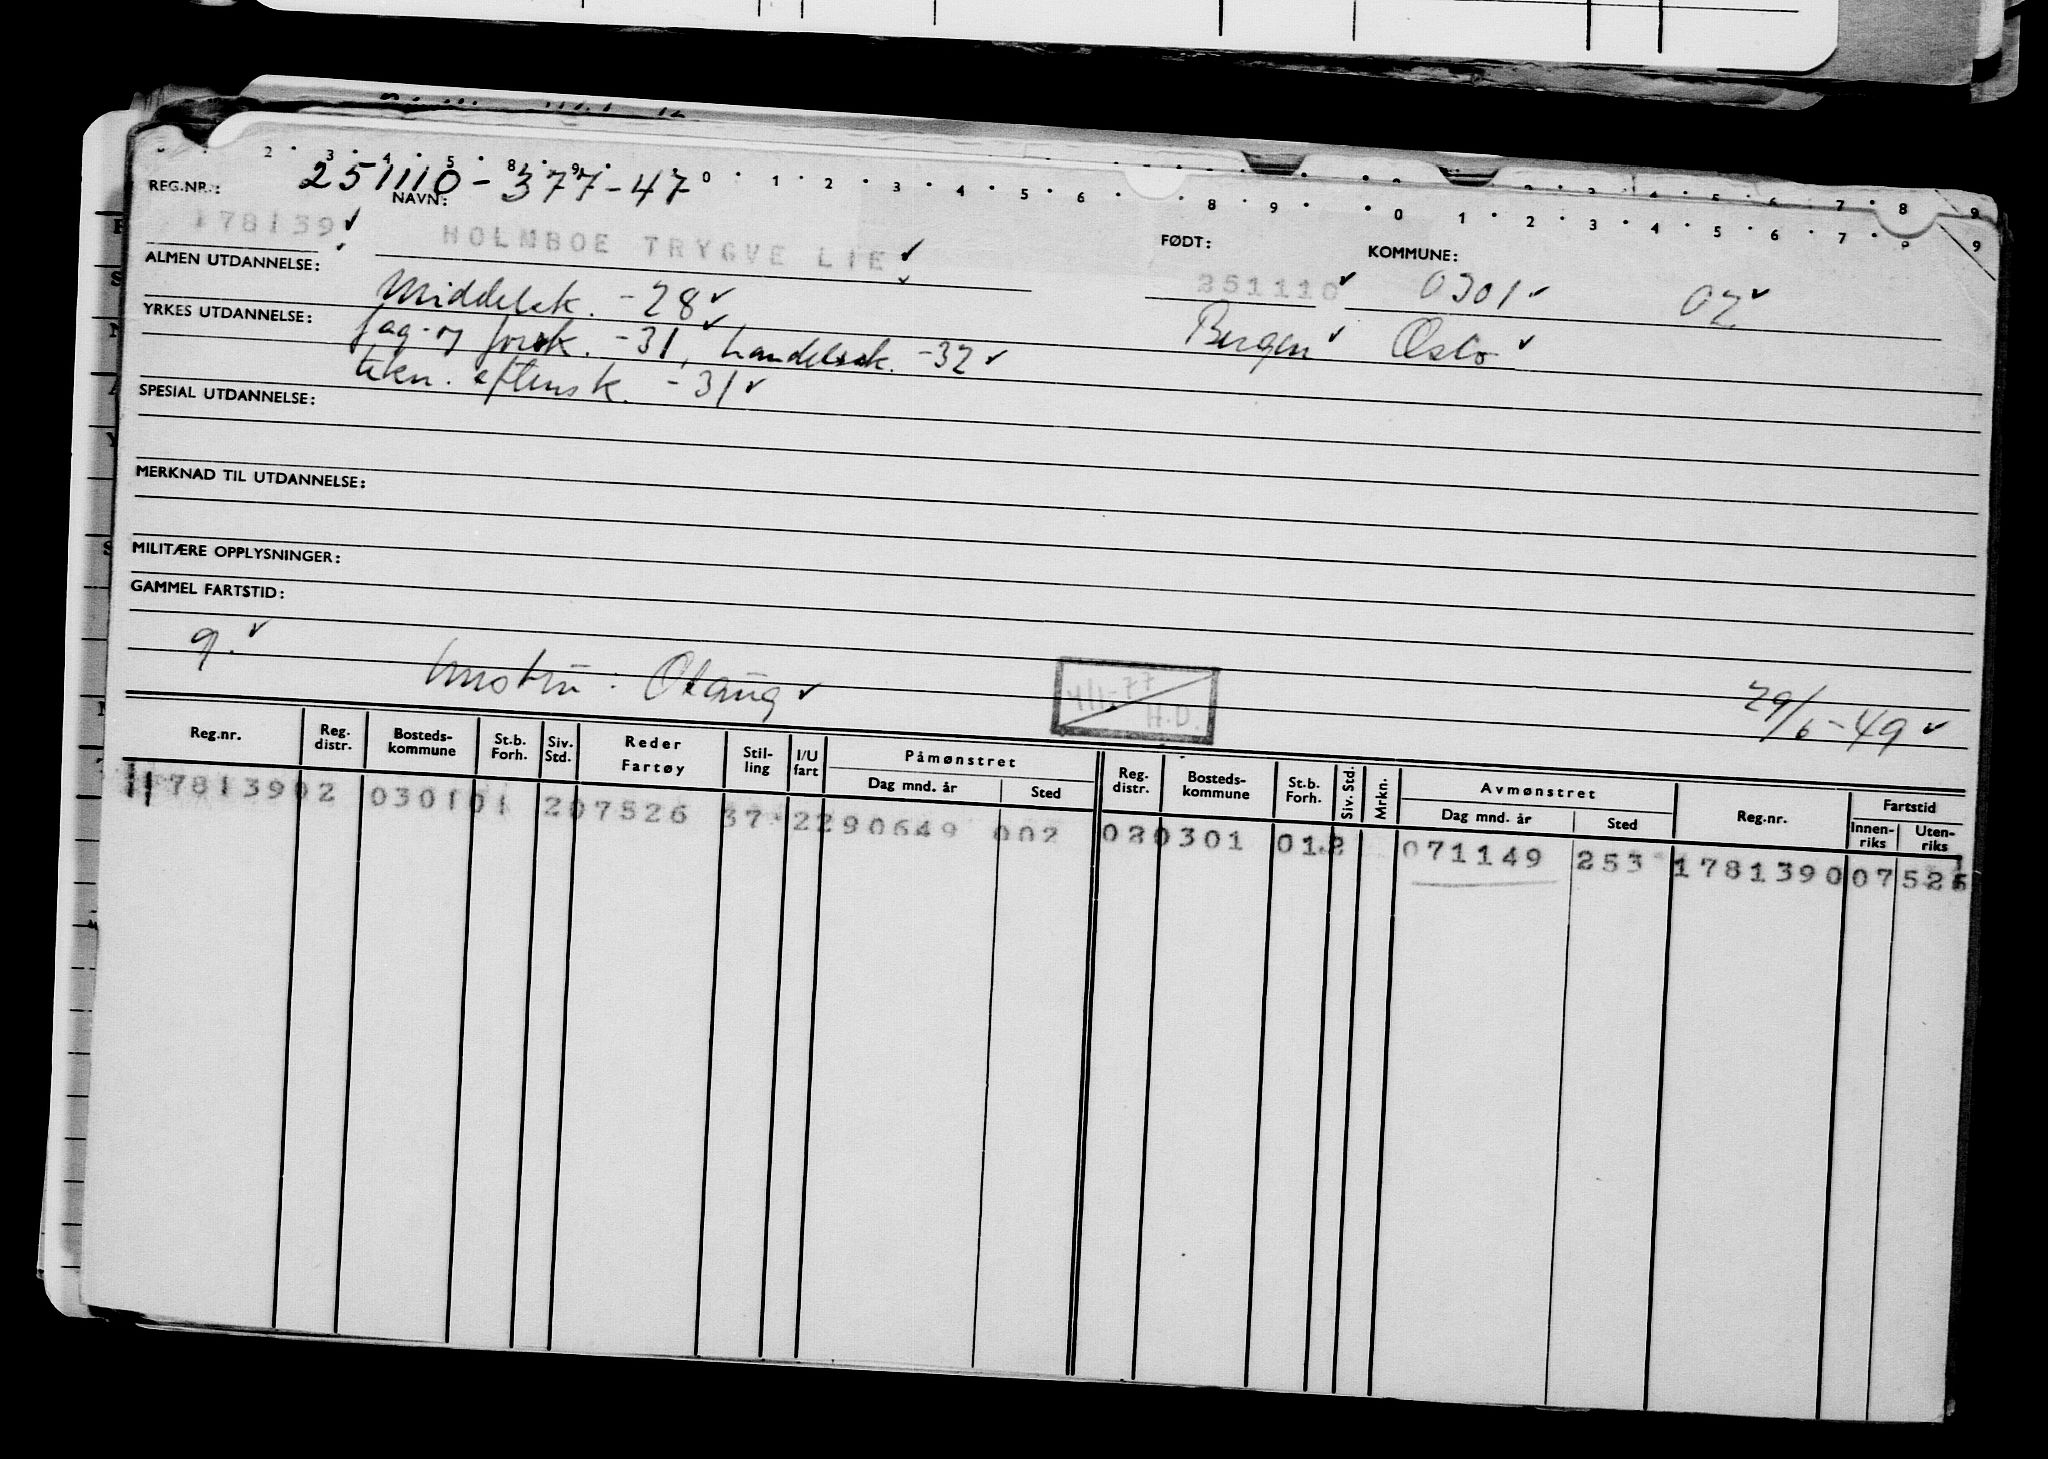 2 3 4 5 8 9 0 1 2 3 4 5 6 8 9 0 1 2 3 4 5 6 7 8 9
251110-37747
REG.NR.: NAVN: FØDT: KOMMUNE:
178139 HOLMBOE TRYGVE LIE 251110 0301 02
ALMEN UTDANNELSE: Middelsk. -28 Bergen Oslo
YRKES UTDANNELSE: fag- og forsk. -31, handelssk. -32
tekn. aftensk. -31
SPESIAL UTDANNELSE:
MERKNAD TIL UTDANNELSE:
MILITÆRE OPPLYSNINGER:
GAMMEL FARTSTID:
g. hustru: Olaug 4/1-77 H.D. 29/6-49
Reg.nr. Reg. distr. Bosteds-kommune St.b. Forh. Siv. Std. Reder Fartøy Stil-ling I/U fart Påmønstret Dag mnd. år Sted Reg. distr. Bosteds-kommune St.b. Forh. Siv. Std. Mrkn. Avmønstret Dag mnd. år Sted Reg.nr. Fartstid Innen-riks Uten-riks
17813902 030101 207526 37 2290649 002 020301 012 071149 253 178139007526